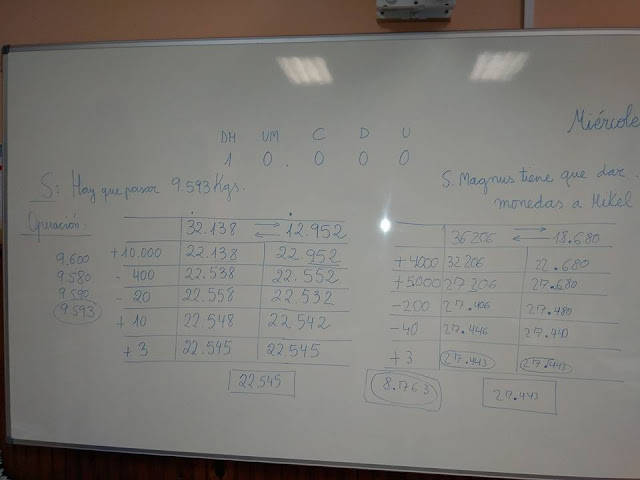 Miércole
DM UM C D U
1 0. 0 0 0
S: Hay que pasar 9.593 Kgs.
Operación:
32.138 ⇄ 12.952
+10.000 22.138 22.952
- 400 22.538 22.552
- 20 22.558 22.532
+ 10 22.548 22.542
+ 3 22.545 22.545
22.545
9.600
9.580
9.590
9.593
S. Magnus tiene que dar
monedas a Mikel
36206 ⇄ 18.680
+4000 32206 22.680
+5000 27206 27.680
-200 27.406 27.480
-40 27.446 27.440
+3 27.443 27.443
8.763
27.443